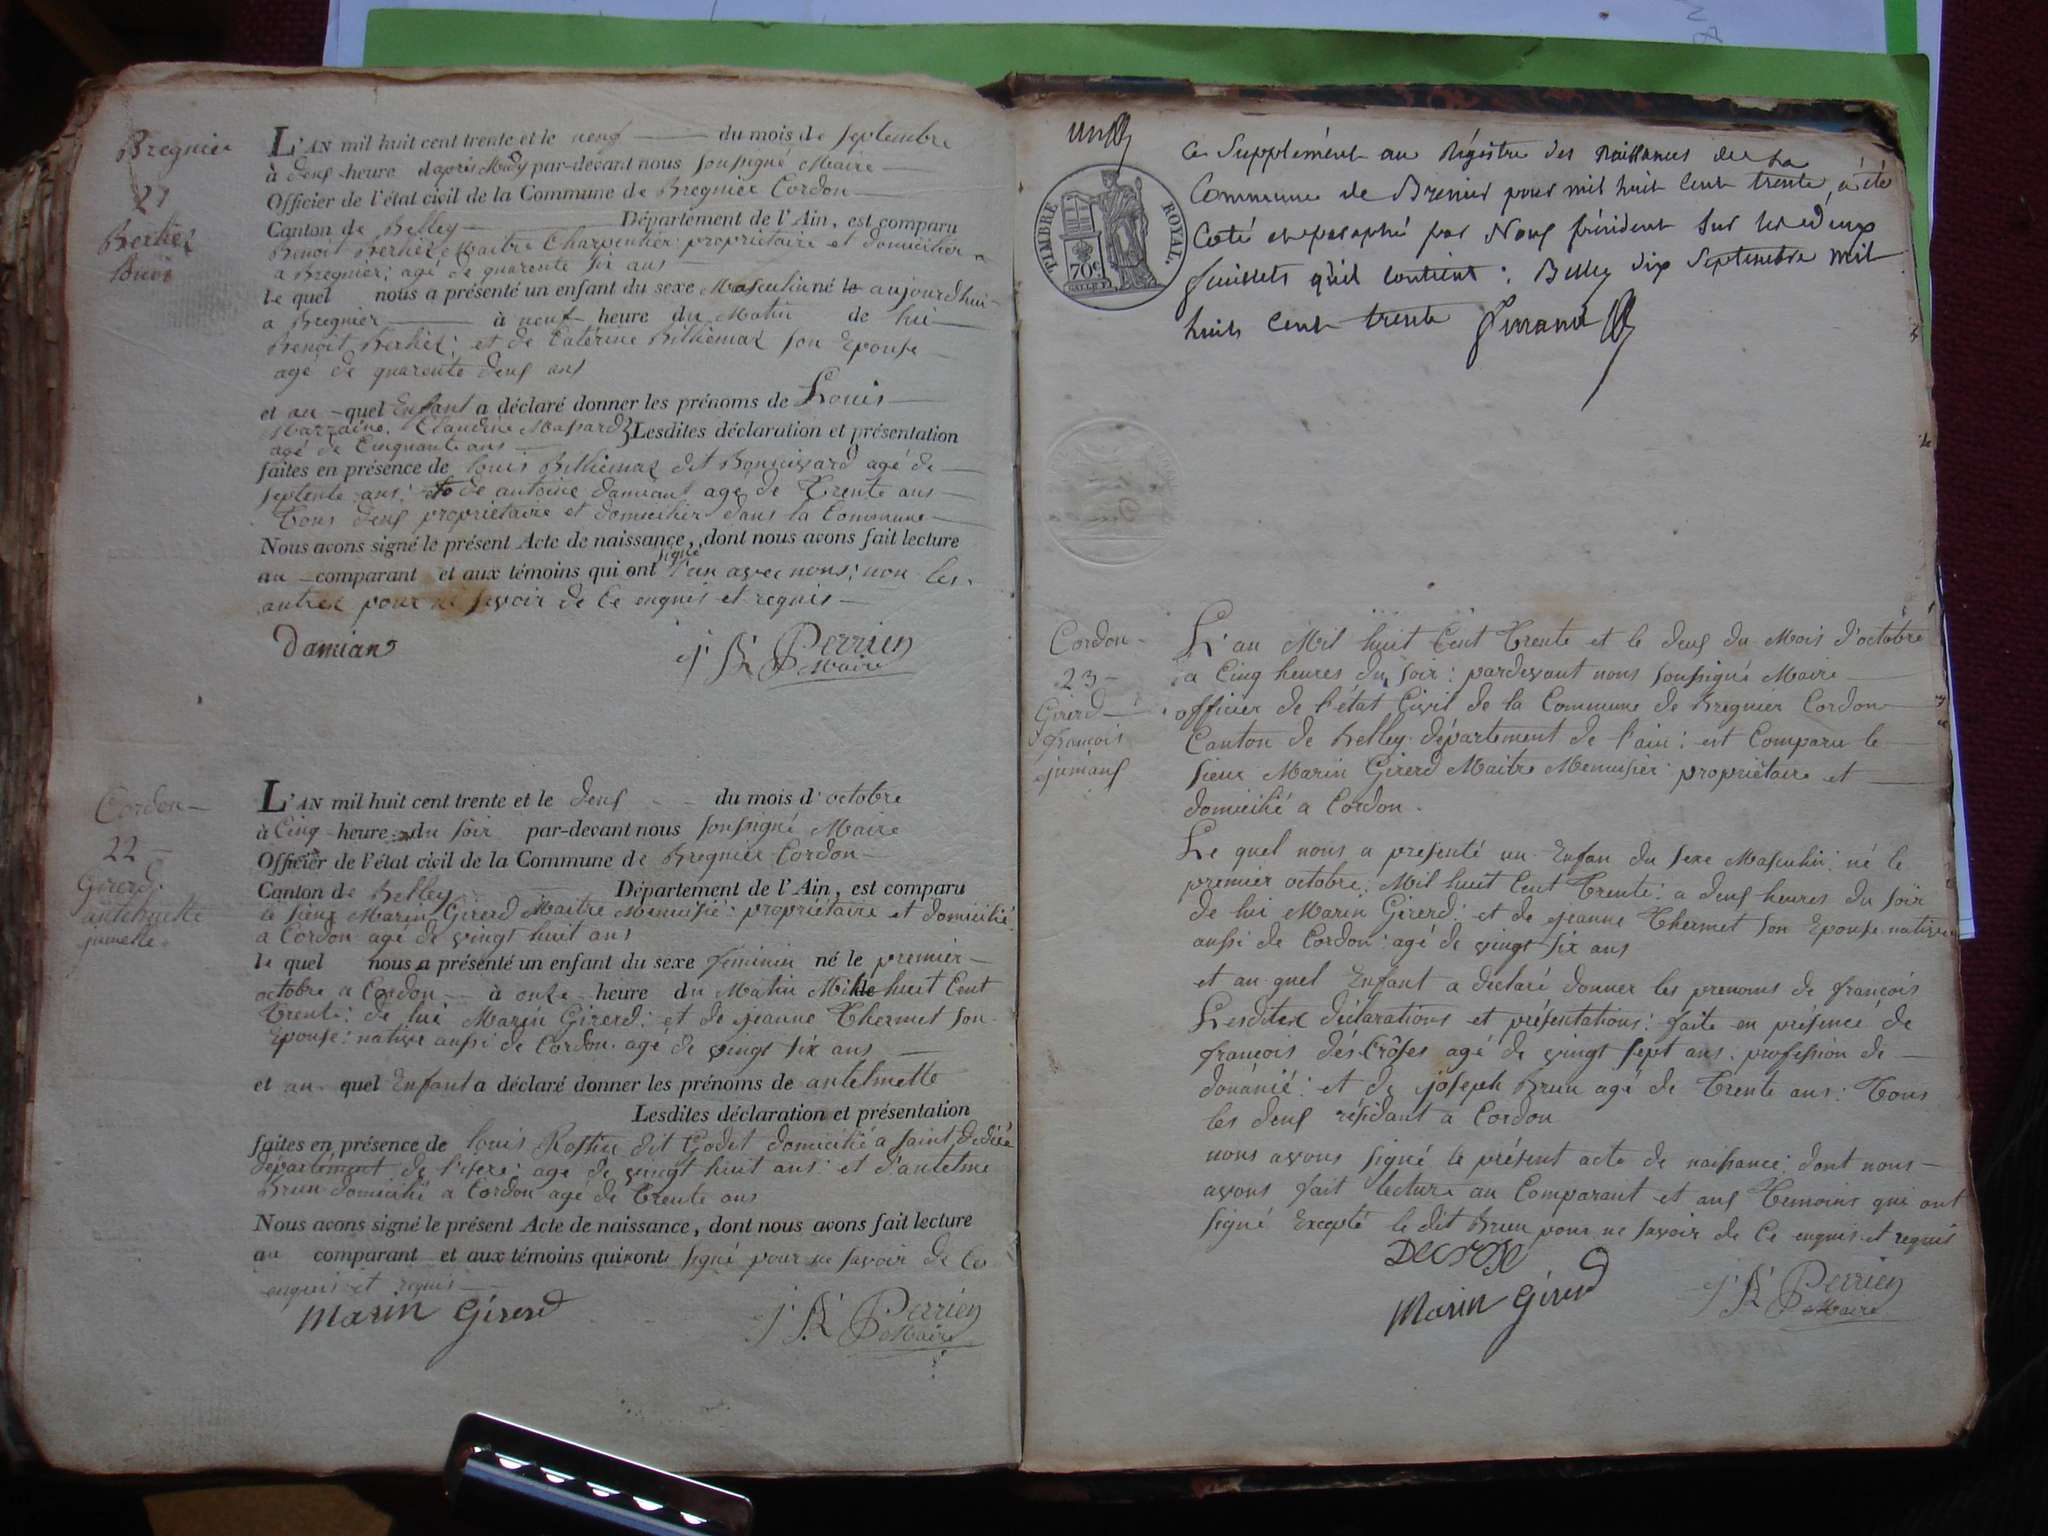 Bregnier
21
Berliez
Louis
L'AN mil huit cent trente et le neuf du mois de septembre
à deux heure d'après Midy par-devant nous soussigné Maire
Officier de l'état civil de la Commune de Bregnier Cordon
Canton de Belley Département de l'Ain, est comparu
Benoit Berliez Maitre Charpentier propriétaire et domicilier
a Bregnier; agé de quarente six ans
le quel nous a présenté un enfant du sexe Masculin né le aujourdhui
a Bregnier à neuf heure du Matin de lui
Benoit Berliez; et de Caterine Billiemaz son Epouse
age de quarente deux ans
et au quel Enfant a déclaré donner les prénoms de Louis
Marraine. Claudine Massard Lesdites déclaration et présentation
agé de Cinquante ans
faites en présence de louis Billiemaz dit Bonnivard agé de
septente ans; et de antoine damian agé de Trente ans
Tous deux propriétaire et domicilier dans la Commune
Nous avons signé le présent Acte de naissance, dont nous avons fait lecture
au comparant et aux témoins qui ont signé l'un avec nous; non les
autres pour ne savoir de ce enquis et requis
Damian
J B Perrien
Maire
Cordon
22
Girerd
antelmette
jumelle
L'AN mil huit cent trente et le deux du mois d'octobre
à Cinq heure du soir par-devant nous soussigné Maire
Officier de l'état civil de la Commune de Bregnier Cordon
Canton de Belley Département de l'Ain, est comparu
le sieur Marin Girerd Maitre Menuisié propriétaire et domicilié
a Cordon agé de vingt huit ans
le quel nous a présenté un enfant du sexe feminin né le premier
octobre a Cordon à onze heure du Matin Mille huit Cent
Trente; de lui Marin Girerd; et de jeanne Thermet son
Epouse; native aussi de Cordon agé de vingt six ans
et au quel Enfant a déclaré donner les prénoms de antelmette
Lesdites déclaration et présentation
faites en présence de louis Rossin dit Godet domicilié a saint didié
département de l'isere; age de vingt huit ans; et d'antelme
Brun domicilié a Cordon agé de Trente ans
Nous avons signé le présent Acte de naissance, dont nous avons fait lecture
au comparant et aux témoins qui ont signé pour ne savoir de Ce
enquis et requis
Marin Girerd
J B Perrien
Maire
un
TIMBRE ROYAL.
70c
Ce Supplément au Régistre des Naissances de la
Commune de Brenier pour mil huit Cent trente, a été
Coté et paraphé par Nous président sur les deux
feuillets qu'il Contient; Belley dix Septembre mil
huit Cent trente
Cordon
23
Girerd
françois
jumaux
L'an Mil huit Cent Trente et le deux du Mois d'octobre
a Cinq heures du soir: pardevant nous soussigné Maire
officier de l'état Civil de la Commune de Bregnier Cordon
Canton de Belley département de l'ain; est Comparu le
sieur Marin Girerd Maitre Menuisier propriétaire et
domicilié a Cordon.
Le quel nous a presenté un Enfan du sexe Masculin né le
premier octobre; Mil huit Cent Trente; a deux heures du soir
de lui Marin Girerd; et de jeanne Thermet son Epouse native
aussi de Cordon; agé de vingt six ans
et au quel Enfant a déclaré donner les prenoms de françois
Lesdites déclarations et présentations; faite en présence de
françois désCrôses agé de vingt sept ans; profession de
douanié; et de joseph Brun agé de Trente ans; Tous
les deux résidant a Cordon
nous avons signé le présent acte de naissance; dont nous
avons fait lecture au Comparant et aux Temoins qui ont
signé Excepté le dit Brun pour ne savoir de Ce enquis et requis
Marin Girerd
J B Perrien
Maire